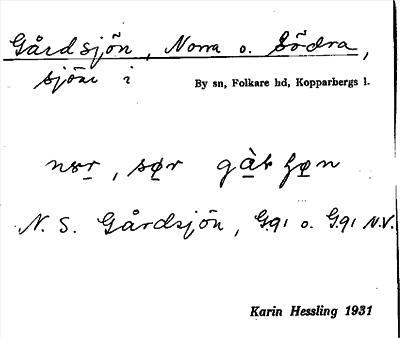 Gårdsjön, Norra o. Södra,
sjöar i
By sn, Folkare hd, Kopparbergs l.
N. S. Gårdsjön, G.91 o. G.91 N.V.
Karin Hessling 1931